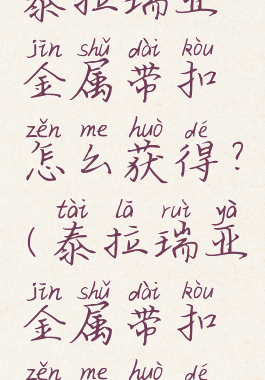 泰拉瑞亚
jīn shǔ dài kòu
金属带扣
zěn me huò dé
怎么获得?
tài lā ruì yà
(泰拉瑞亚
jīn shǔ dài kòu
金属带扣
zěn me huò dé